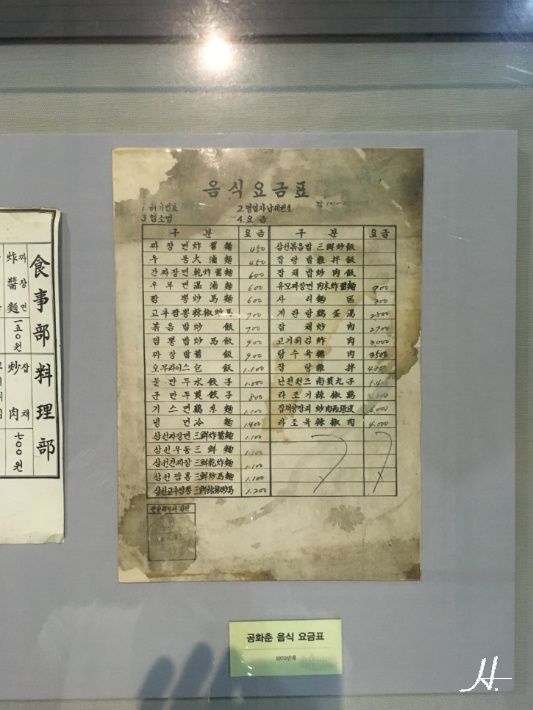 음식요금표
1. 허가번호
2. 영업자납세번호
3. 업소명
4. 요금
구분 요금 구분 요금
짜장면 炸醬麵 450 삼선볶음밥 三鮮炒飯
우동 大滷麵 450 잡탕밥 雜拌飯
간짜장면 乾炸醬麵 600 잡채밥 炒肉飯
우부면 溫滷麵 600 유모짜장면 肉末炸醬麵 900
짬뽕 炒馬麵 600 사리 麵 200
고추짬뽕 辣椒炒馬 700 계란탕 鷄蛋湯 2500
볶음밥 炒飯 700 잡채 炒肉 2700
짬뽕밥 炒馬飯 900 고기튀김 炸肉 3000
짜장밥 醬飯 900 탕수육 糖肉 3500
오무라이스 包飯 1.100 잡탕 雜拌
물만두 水餃子 1.000 난젼완즈 南煎丸子
군만두 煎餃子 800 라조기 辣椒鷄
기스면 鷄絲麵 1.100
냉면 冷麵 1.400 라조육 辣椒肉 4.000
삼선짜장면 三鮮炸醬麵 1.100
삼선우동 三鮮麵 1.100
삼선간짜장 三鮮乾炸麵 1.100
삼선짬뽕 三鮮炒馬麵 1.100
삼선고추짬뽕 三鮮辣椒炒馬 1.200
食事部
짜장면
炸醬麵
一五0원
料理部
잡채
炒肉
七00원
공화춘 음식 요금표
H.